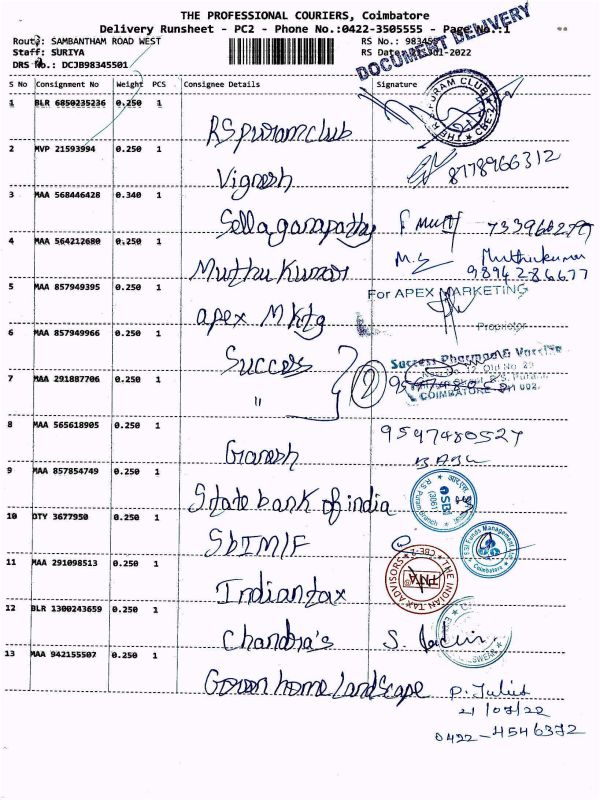 THE PROFESSIONAL COURIERS, Coimbatore
Delivery Runsheet - PC2 - Phone No.:0422-3505555 - Page No.:1
Route: SAMBANTHAM ROAD WEST
RS No.: 98345501
Staff: SURIYA
RS Date: 21-Jul-2022
DRS No.: DCJB98345501
DOCUMENT DELIVERY
S No Consignment No Weight PCS Consignee Details Signature
1 BLR 6850235236 0.250 1 RSpuramclub
2 MVP 21593994 0.250 1 Vignesh 8778966312
3 MAA 568446428 0.340 1 Sellaganapathy
4 MAA 564212680 0.250 1 Muthu Kumar M.S Muthukumar
9894286677
5 MAA 857949395 0.250 1 apex Mktg For APEX MARKETING
Proprietor
6 MAA 857949966 0.250 1 Success
7 MAA 291887706 0.250 1 " 2
COIMBATORE
8 MAA 565618905 0.250 1 Ganesh 9597480527
BABU
9 MAA 857854749 0.250 1 State bank of india SBI
10 DTY 3677950 0.250 1 SbIMF
11 MAA 291098513 0.250 1 Indiantax THE INDIAN TAX ADVISORS CBE-2
12 BLR 1300243659 0.250 1 Chandra's
13 MAA 942155507 0.250 1 Green home landscape P. Juliet
21/07/22
0422-4546372